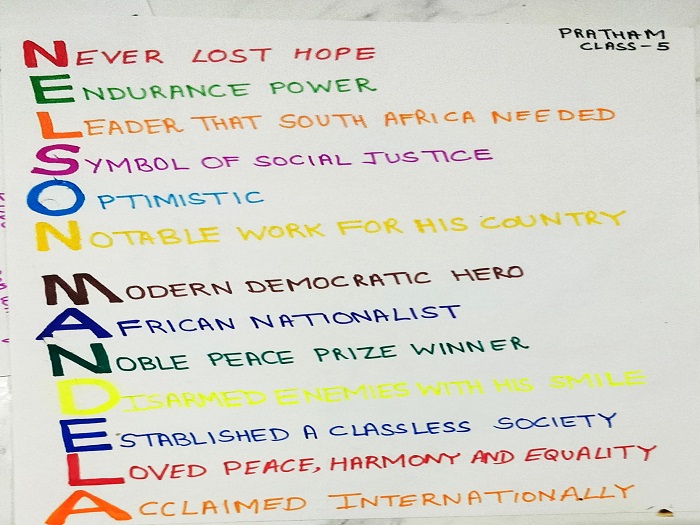 PRATHAM
CLASS-5
NEVER LOST HOPE
ENDURANCE POWER
LEADER THAT SOUTH AFRICA NEEDED
SYMBOL OF SOCIAL JUSTICE
OPTIMISTIC
NOTABLE WORK FOR HIS COUNTRY
MODERN DEMOCRATIC HERO
AFRICAN NATIONALIST
NOBLE PEACE PRIZE WINNER
DISARMED ENEMIES WITH HIS SMILE
ESTABLISHED A CLASSLESS SOCIETY
LOVED PEACE, HARMONY AND EQUALITY
ACCLAIMED INTERNATIONALLY